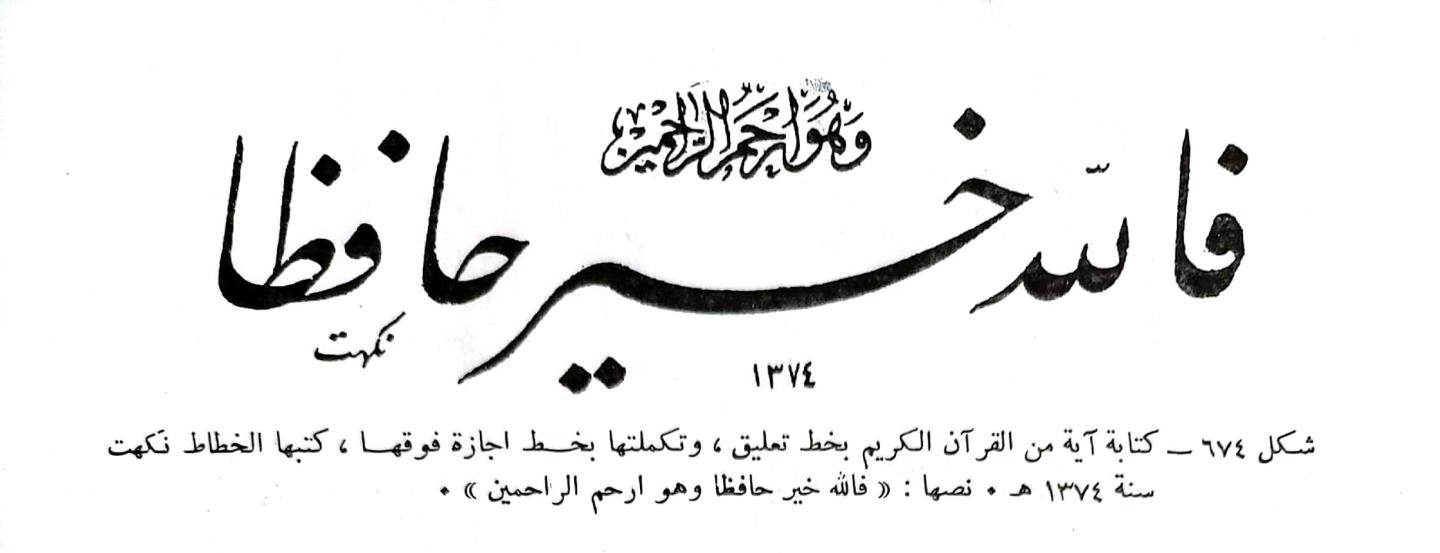 وَهُوَ ارْحَمُ الرَّاحِمِيْنَ
فالله خير حافظا
نكهت
١٣٧٤
شكل ٦٧٤ ــ كتابة آية من القرآن الكريم بخط تعليق ، وتكملتها بخــط اجازة فوقهــا ، كتبها الخطاط نَكهت
سنة ١٣٧٤ هـ ٠ نصها : « فالله خير حافظا وهو ارحم الراحمين » ٠